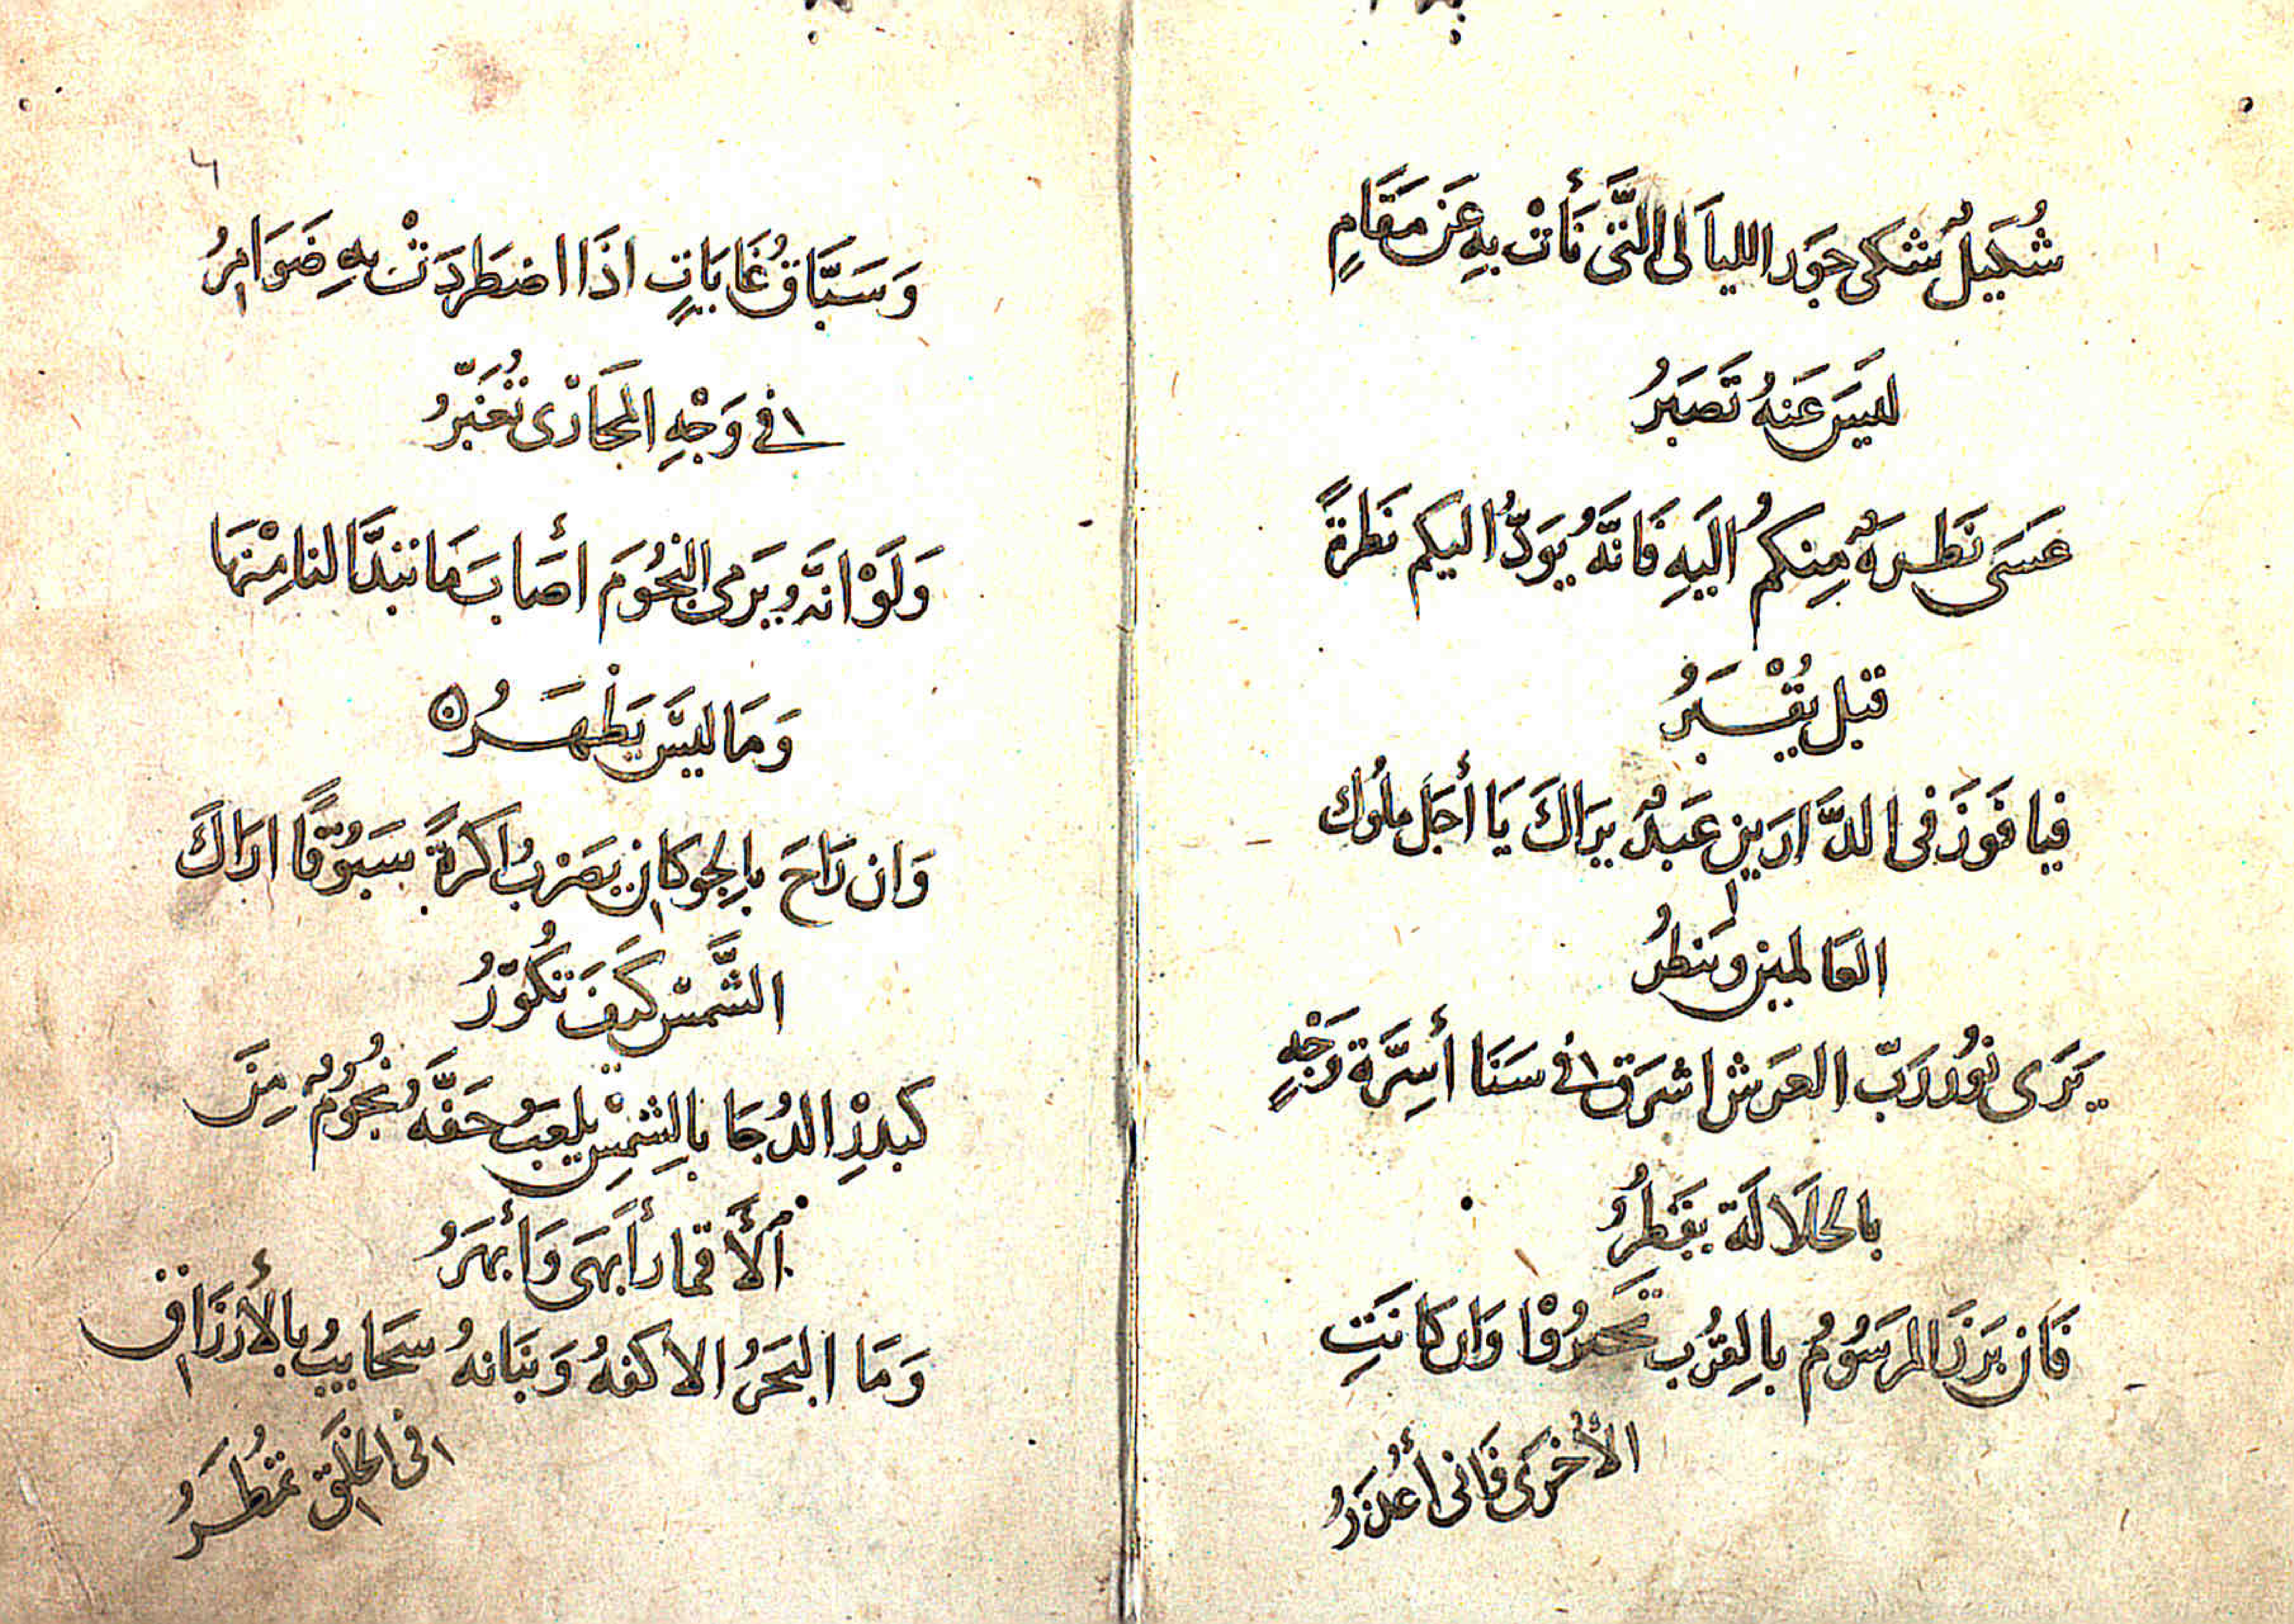 شُكَيلٌ شكى جَوَر الليَالى الَّتى نَأَتْ بهِ عَن مَقَامٍ
ليَسَ عَنهُ تَصَبَرُ
عَسَى نَظرةٌ مِنكمُ اليَهِ فَانَّهُ يَوَدُّ اليكم نَظرةً
قبل يُقْبَرُ
فيا فَوَزَ فى الدَّارَينِ عَبدٌ يَراكَ يَا أجَل ملُوك
العَالمين وَينظرُ
يَرَى نُورَ رَبّ العَرَش اشرَق فى سَنَا أسِرَّة وَجْهٍ
بالجَلَالَة يفَطِرُ
فَان بَرَزَ المرسَوُمُ بالِقُرب تَحيرُوْا وَان كانَتِ
الأُخرَى فَانى أُعذَرُ
٦
وَسَبَّاقُ غَايَاتٍ اذَا اضطَردَتْ بهِ ضَوَامِرُ
فى وَجْهِ المجَارْى تُغَبّرُ
وَلَوَ انَّهُ يَرَمى النجُوُمَ أصَابَ مَا تبَدَّا لنا مِنْهَا
وَمَا ليَس يَظْهَرُ
وَان رَاحَ بالِجوكانِ يضَرْبُ اكرةً سَبَوُقًا ارَاكَ
الشَّمسْ كيَفَ تُكوّرُ
كبدرْ الدُجَا بالِشمْسِ يلعَبُ حَفَّهُ نجُومٌ مِنَ
الأَقمار أَبهَى وَأَبهَرُ
وَمَا البَحَرُ الا كفهُ وَبنَانهُ سَحَايبُ بالأَرزَاقِ
فى الخلَقِ تمطُرُ